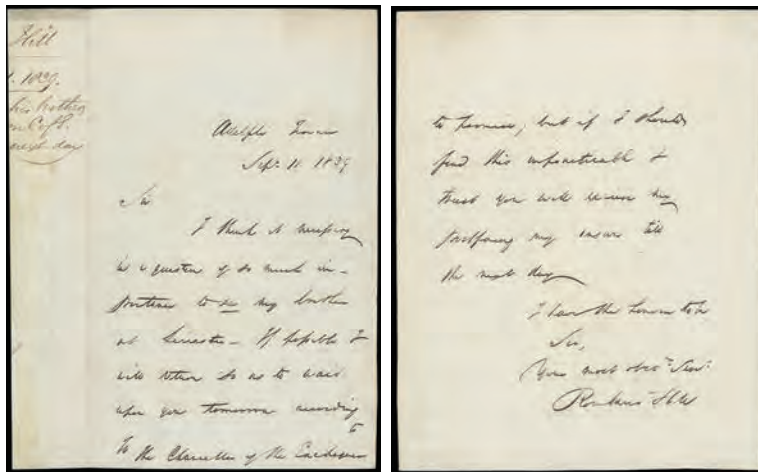 Hill
1839.
his brother
next day
Adelphi Terrace
Sept. 11. 1839
Sir
I think it necessary
in a question of so much im-
portance to see my brother
at Leicester – If possible I
will return so as to wait
upon you tomorrow according
to
To the Chancellor of the Exchequer
to promise, but if I should
find this impracticable I
trust you will excuse my
postponing my answer till
the next day
I have the honor to be
Sir,
Your most obedt. Servt.
Rowland Hill